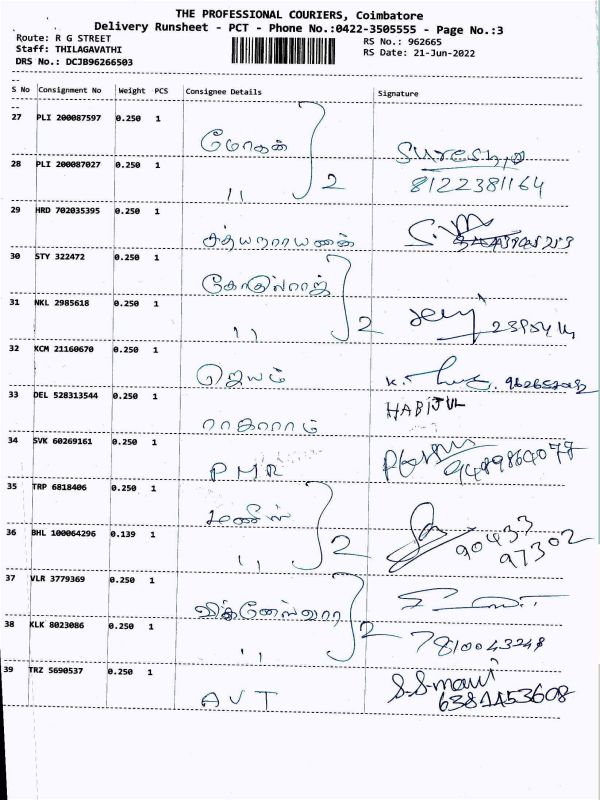 THE PROFESSIONAL COURIERS, Coimbatore
Delivery Runsheet - PCT - Phone No.:0422-3505555 - Page No.:3
Route: R G STREET RS No.: 962665
Staff: THILAGAVATHI RS Date: 21-Jun-2022
DRS No.: DCJB96266503
S No Consignment No Weight PCS Consignee Details Signature
27 PLI 200087597 0.250 1 மோகன் Suresh
28 PLI 200087027 0.250 1 " 2 8122381164
29 HRD 702035395 0.250 1 சத்யநாராயணன்
30 STY 322472 0.250 1
31 NKL 2985618 0.250 1 " 2
32 KCM 21160670 0.250 1 ஜெயம் K.
33 DEL 528313544 0.250 1 ராகாராம் HABIJUL
34 SVK 60269161 0.250 1 PMR 9489864077
35 TRP 6818406 0.250 1
36 BHL 100064296 0.139 1 " 2 90433 97302
37 VLR 3779369 0.250 1 விக்னேஸ்வரா
38 KLK 8023086 0.250 1 " 2 7810043248
39 TRZ 5690537 0.250 1 AVT S.S.mani
6381453608